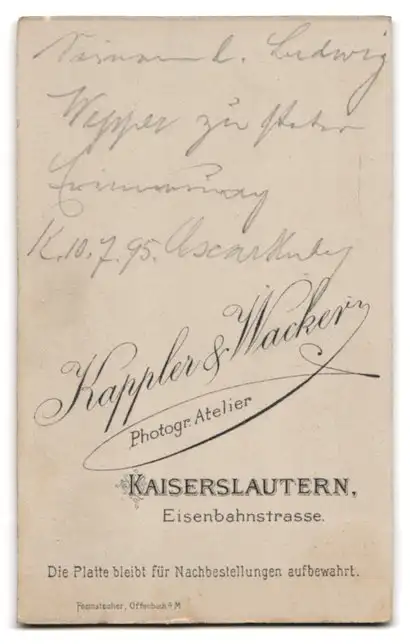 Seinem l. Ludwig
Wepper zu steter
Erinnerung
K. 10.7.95.
Kappler & Wacker
Photogr. Atelier
KAISERSLAUTERN,
Eisenbahnstrasse.
Die Platte bleibt für Nachbestellungen aufbewahrt.
Offenbach a/M